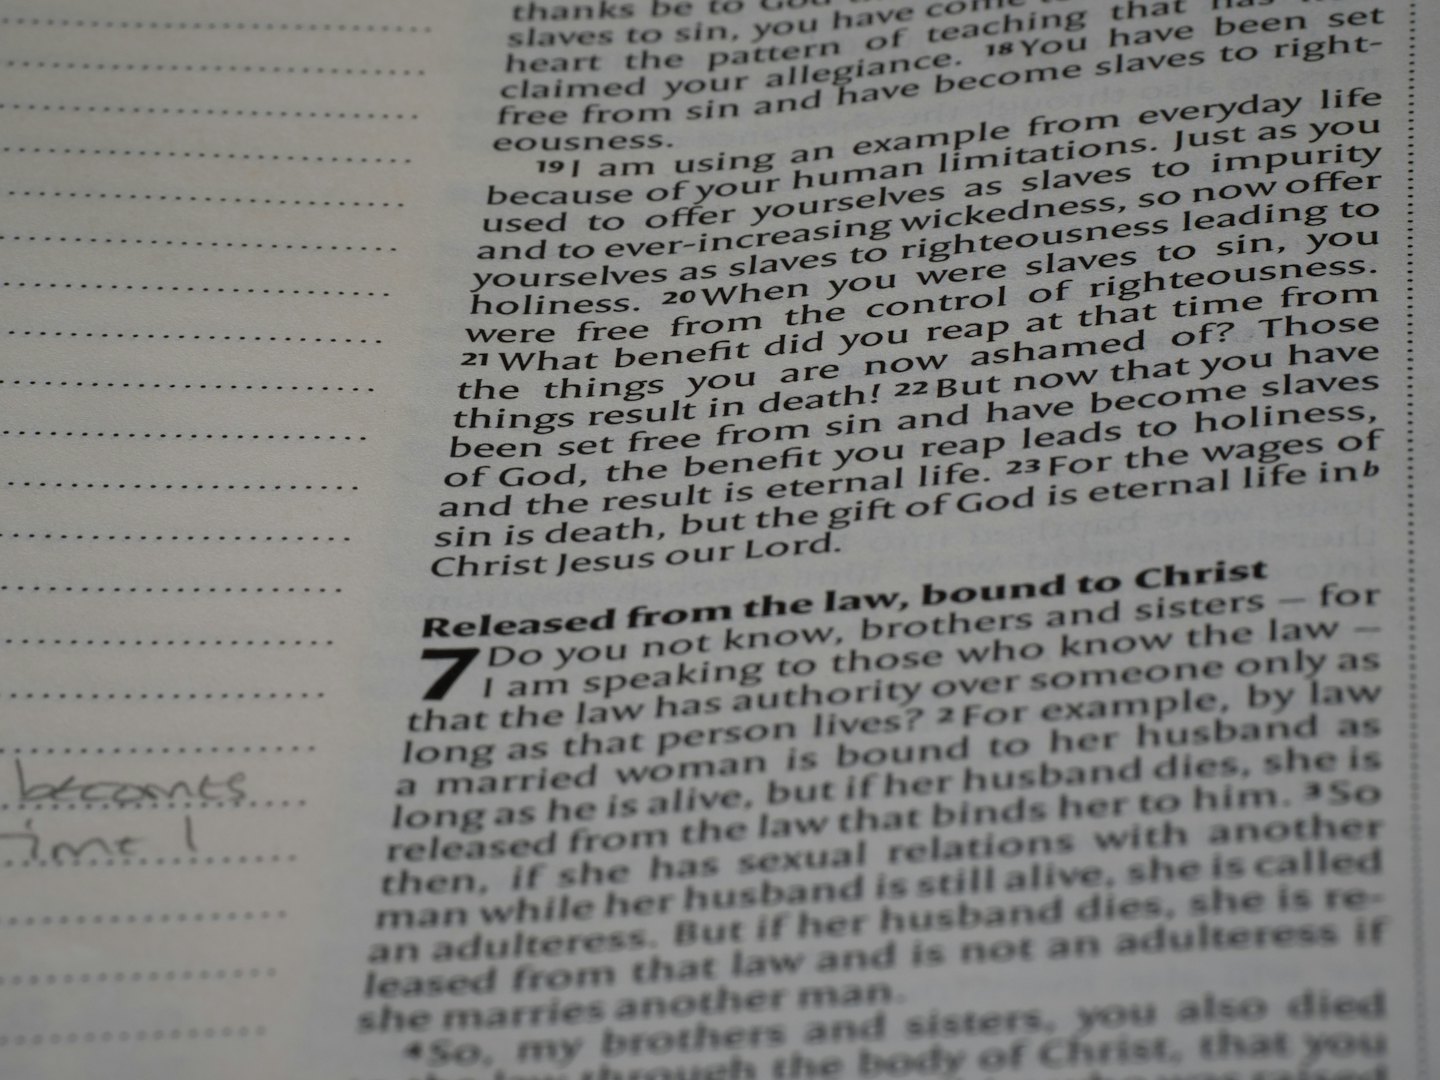 thanks be to God
slaves to sin, you have come to
heart the pattern of teaching that has
claimed your allegiance. 18 You have been set
free from sin and have become slaves to right-
eousness.
19 I am using an example from everyday life
because of your human limitations. Just as you
used to offer yourselves as slaves to impurity
and to ever-increasing wickedness, so now offer
yourselves as slaves to righteousness leading to
holiness. 20 When you were slaves to sin, you
were free from the control of righteousness.
21 What benefit did you reap at that time from
the things you are now ashamed of? Those
things result in death! 22 But now that you have
been set free from sin and have become slaves
of God, the benefit you reap leads to holiness,
and the result is eternal life. 23 For the wages of
sin is death, but the gift of God is eternal life in b
Christ Jesus our Lord.
Released from the law, bound to Christ
7 Do you not know, brothers and sisters – for
I am speaking to those who know the law –
that the law has authority over someone only as
long as that person lives? 2 For example, by law
a married woman is bound to her husband as
long as he is alive, but if her husband dies, she is
released from the law that binds her to him. 3 So
then, if she has sexual relations with another
man while her husband is still alive, she is called
an adulteress. But if her husband dies, she is re-
leased from that law and is not an adulteress if
she marries another man.
4 So, my brothers and sisters, you also died
the law through the body of Christ, that you
becomes
time I